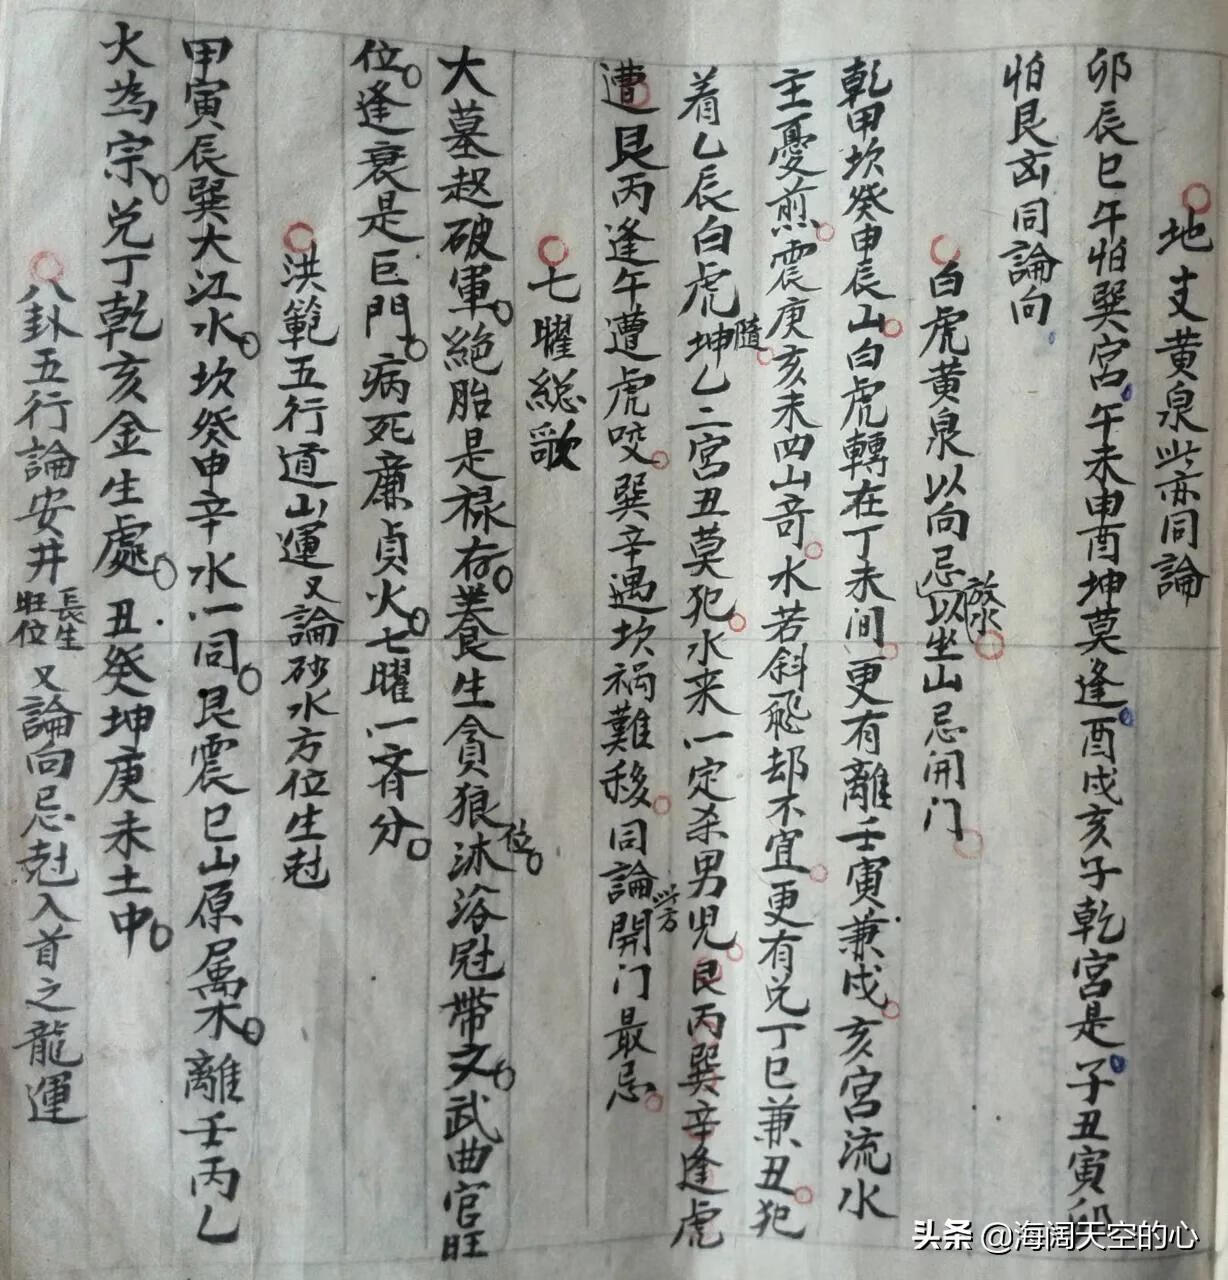 地支黄泉此亦同論
卯辰巳午怕巽宮午未申酉坤莫逢酉戌亥子乾宮是子丑寅卯
怕艮凶同論向
白虎黄泉以向忌放水以坐山忌開门
乾甲坎癸申辰山白虎轉在丁未间更有離壬寅兼戌亥宮流水
主憂煎震庚亥未四山奇水若斜飛却不宜更有兑丁巳兼丑犯
着乙辰白虎隨坤乙二宮丑莫犯水来一定杀男児艮丙巽辛逢虎
遭艮丙逢午遭虎咬巽辛遇坎禍難移同論開门此方最忌
七曜総歌
大墓起破軍絕胎是禄存養生貪狼位沐浴冠帶文武曲官旺
位逢衰是巨門病死廉貞火七曜一齐分
洪範五行道山運又論砂水方位生尅
甲寅辰巽大江水坎癸申辛水一同艮震巳山原属木離壬丙乙
火為宗兑丁乾亥金生處丑癸坤庚未土中
八卦五行論安井長生旺位又論向忌尅入首之龍運
头条 @海阔天空的心